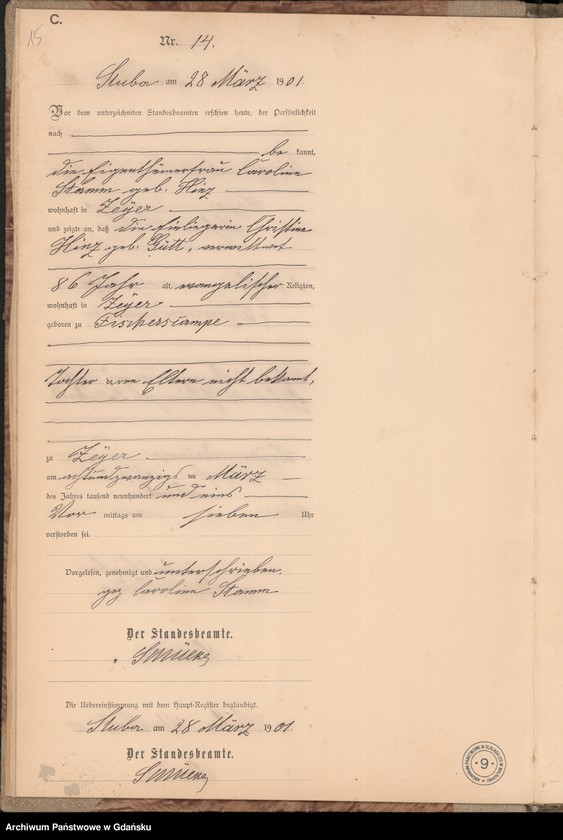 C.
15
Nr. 14.
Stuba am 28 März 1901.
Vor dem unterzeichneten Standesbeamten erschien heute, der Persönlichkeit
nach
be kannt,
die Eigenthümerfrau Caroline
Stamm geb. Hinz
wohnhaft in Zeyer
und zeigte an, daß die Einliegerin Christine
Hinz geb. Gütt, verwittwet
86 Jahr alt, evangelischer Religion,
wohnhaft in Zeyer
geboren zu Fischerscampe
Tochter deren Eltern nicht bekannt,
zu Zeyer
am achtundzwanzigs ten März
des Jahres tausend neunhundert und eins
Vor mittags um sieben Uhr
verstorben sei.
Vorgelesen, genehmigt und unterschrieben.
gez Caroline Stamm
Der Standesbeamte.
Die Uebereinstimmung mit dem Haupt-Register beglaubigt.
Stuba am 28 März 1901.
Der Standesbeamte.
9
Archiwum Państwowe w Gdańsku